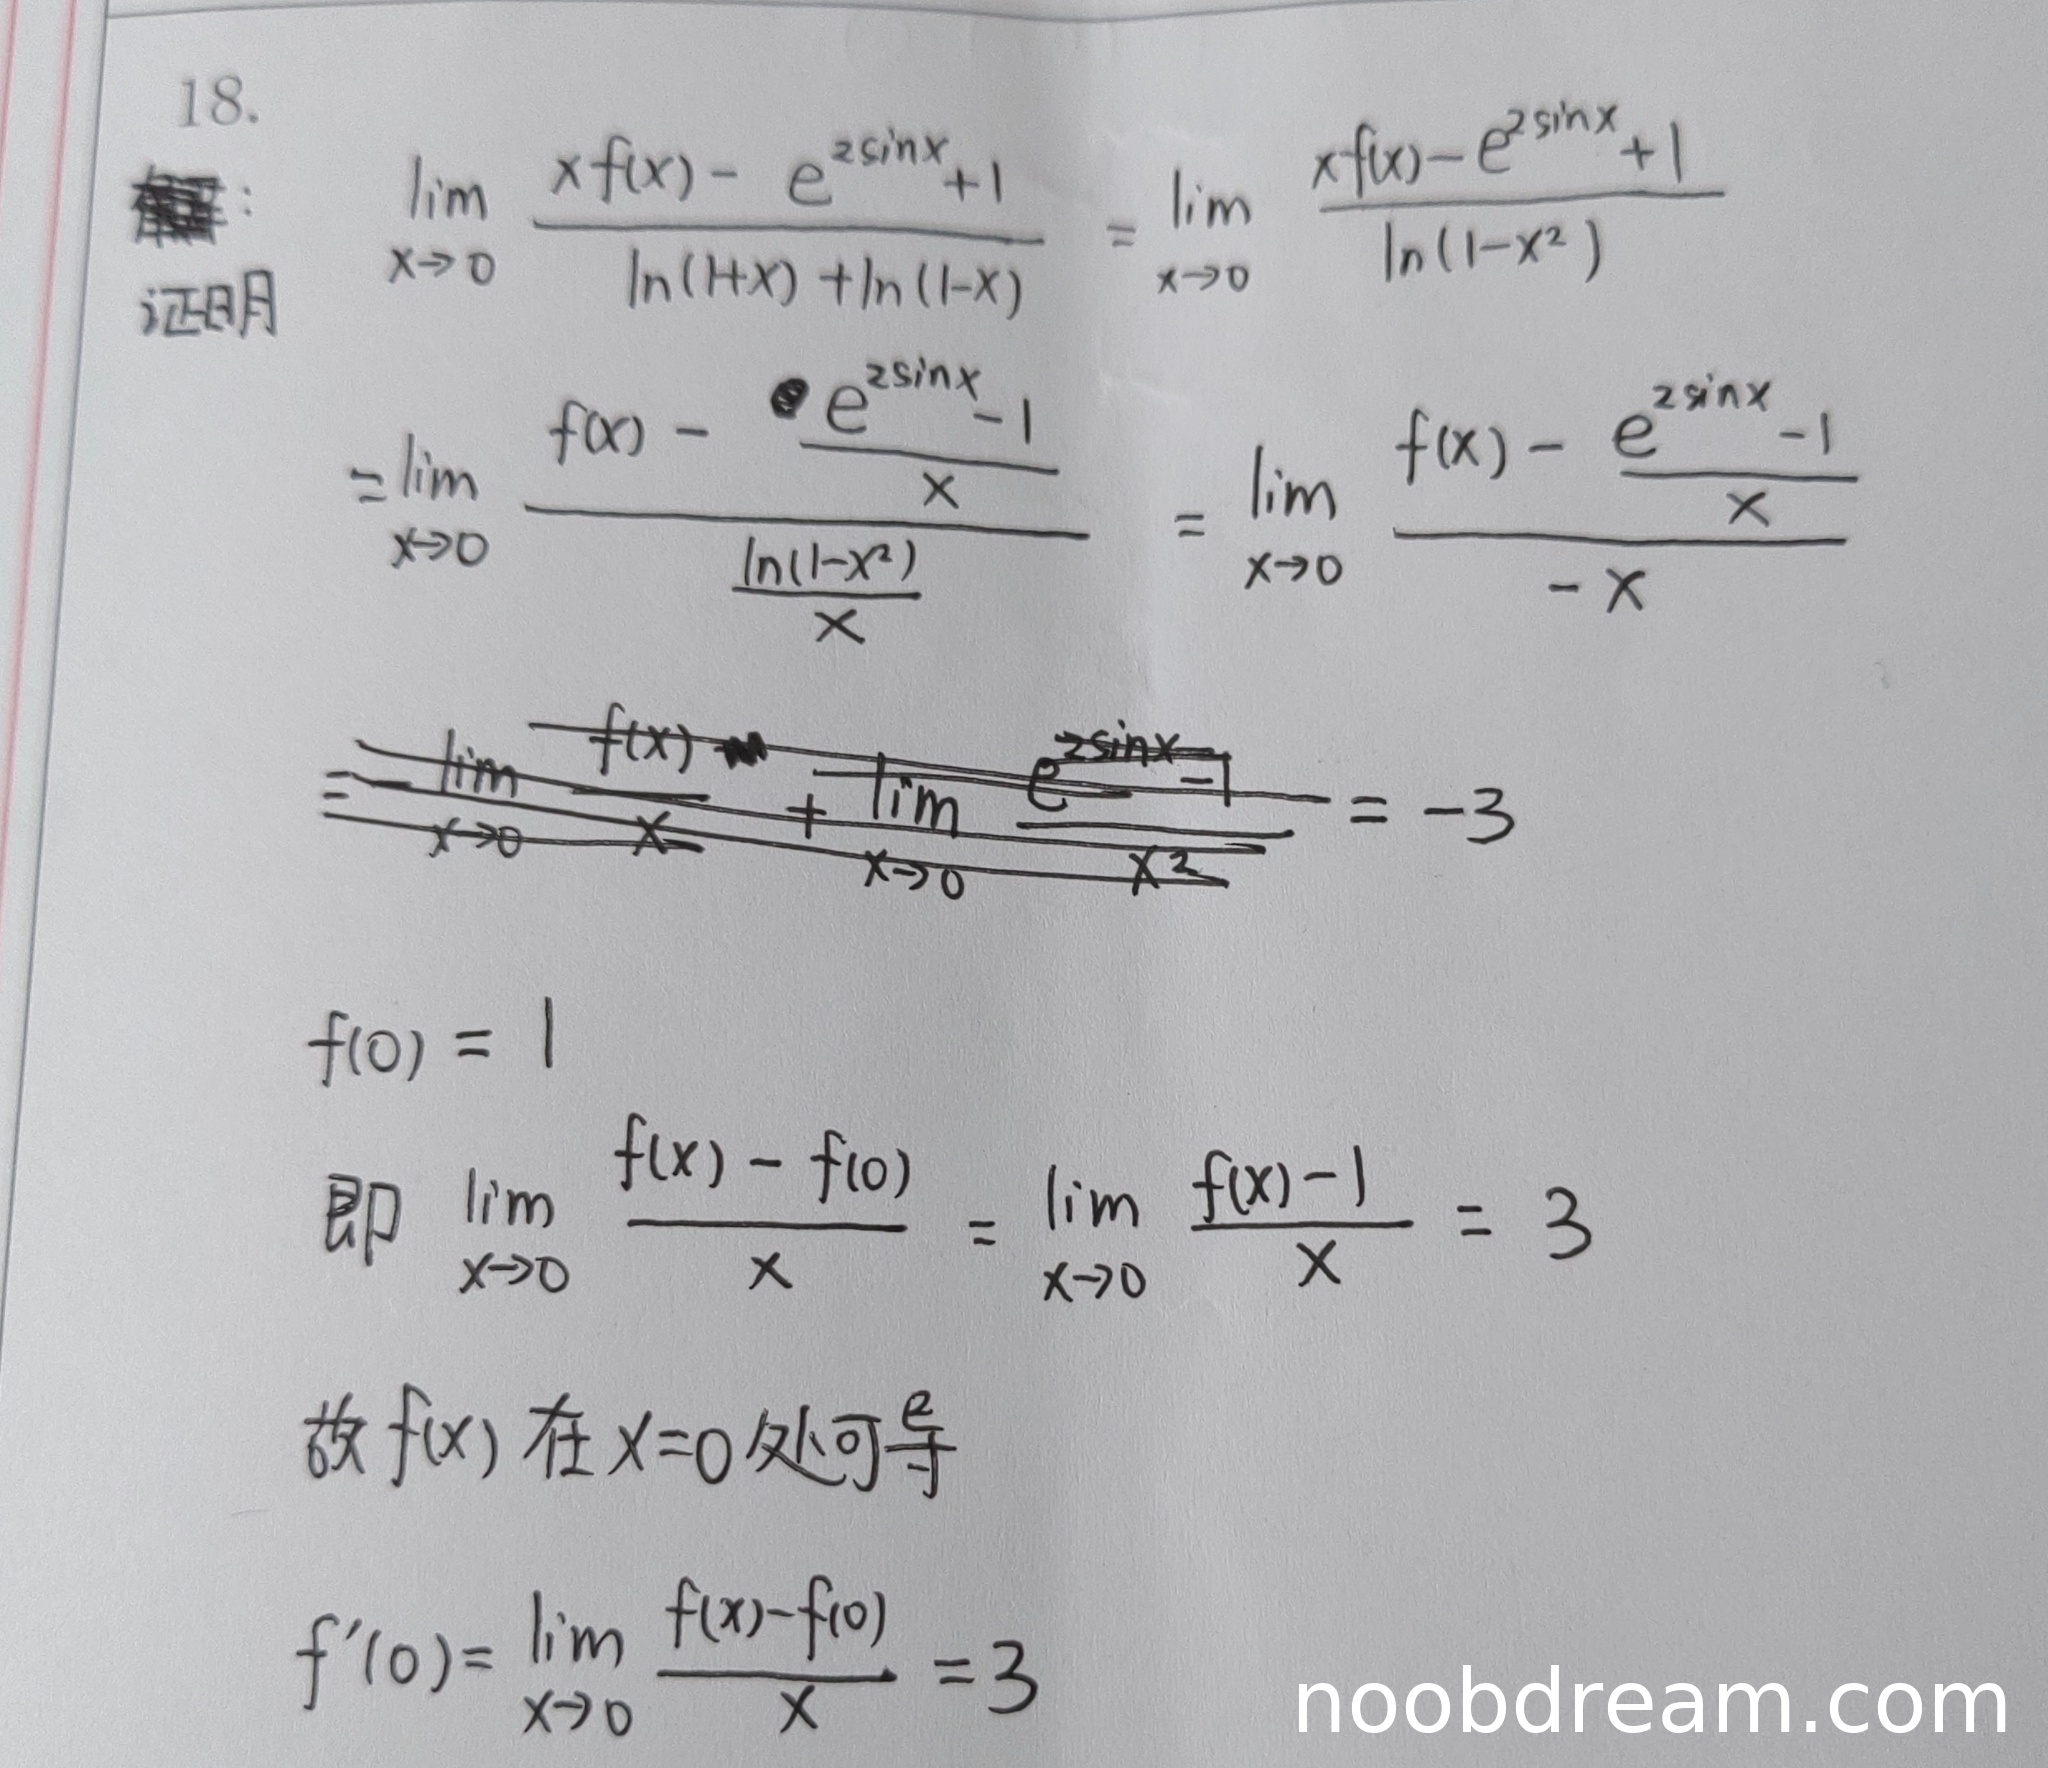 18.
证明: lim_{x→0} (xf(x) - e^{2sinx} + 1) / (ln(1+x) + ln(1-x)) = lim_{x→0} (xf(x) - e^{2sinx} + 1) / ln(1-x²)
= lim_{x→0} (f(x) - (e^{2sinx} - 1)/x) / (ln(1-x²)/x) = lim_{x→0} (f(x) - (e^{2sinx} - 1)/x) / (-x)
= - lim_{x→0} f(x)/x + lim_{x→0} (e^{2sinx} - 1)/x² = -3
f(0) = 1
即 lim_{x→0} (f(x) - f(0))/x = lim_{x→0} (f(x) - 1)/x = 3
故 f(x) 在 x=0 处可导
f'(0) = lim_{x→0} (f(x) - f(0))/x = 3
noobdream.com